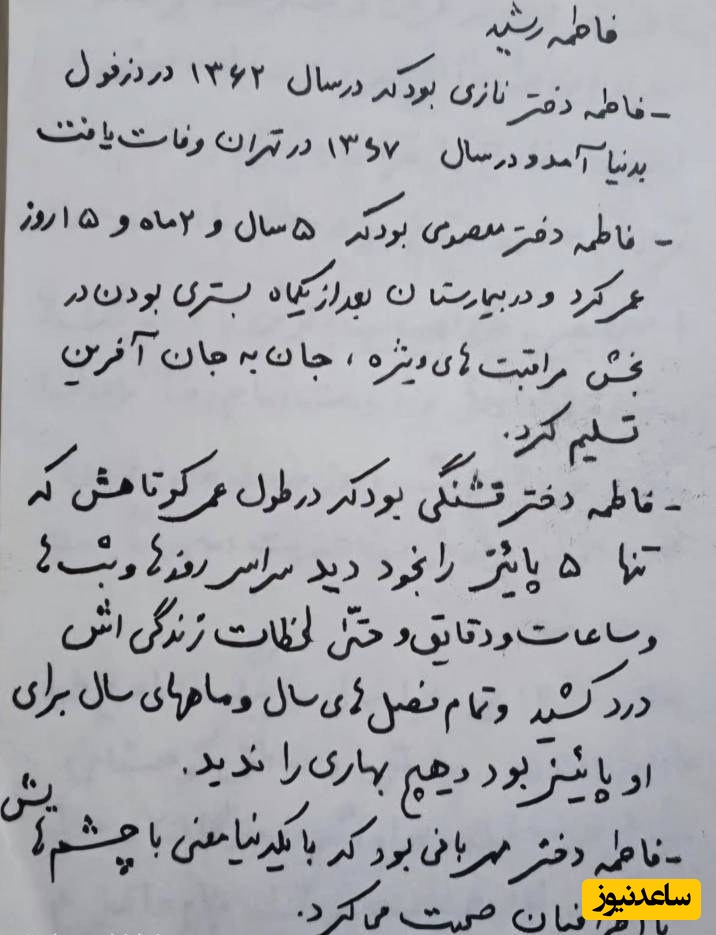 فاطمه رشید
- فاطمه دختر نازی بود که در سال ۱۳۶۲ در دزفول
بدنیا آمد و در سال ۱۳۶۷ در تهران وفات یافت
- فاطمه دختر معصومی بود که ۵ سال و ۲ ماه و ۱۵ روز
عمر کرد و در بیمارستان بعد از یکماه بستری بودن در
بخش مراقبت های ویژه ، جان به جان آفرین
تسلیم کرد.
- فاطمه دختر قشنگی بود که در طول عمر کوتاهش که
تنها ۵ پائیز را بخود دید سراسر روزها و شب ها
و ساعات و دقایق و حتّی لحظات زندگی اش
درد کشید و تمام فصل های سال و ماههای سال برای
او پائیز بود و هیچ بهاری را ندید.
- فاطمه دختر مهربانی بود که با یکدنیا معنی با چشم هایش
با اطرافیان صحبت می کرد.
ساعدنیوز